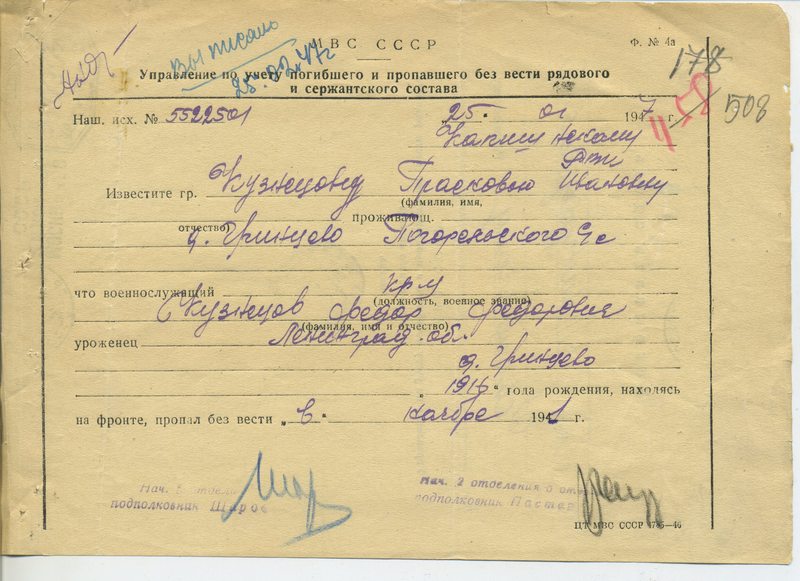 Выписано
25.02.47г
МВС СССР
Ф. № 4а
178
Управление по учету погибшего и пропавшего без вести рядового
и сержантского состава
11-58
508
Наш. исх. № 5522501
25. 01 1947 г.
Капшинскому
РВК
Известите гр. Кузнецову Прасковью Ивановну
(фамилия, имя,
отчество) проживающ.
д. Гринцево Погорельского с/с
что военнослужащий кр-ц
(должность, военное звание)
Кузнецов Федор Федорович
(фамилия, имя и отчество)
уроженец Ленинград. обл.
д. Гринцево
„ 1916 " года рождения, находясь
на фронте, пропал без вести „в " ноябре 1941 г.
Нач. отделе
подполковник Шаров
Нач. 2 отделения 6 отде
подполковник Пастер
ЦТ МВС СССР 4785-46